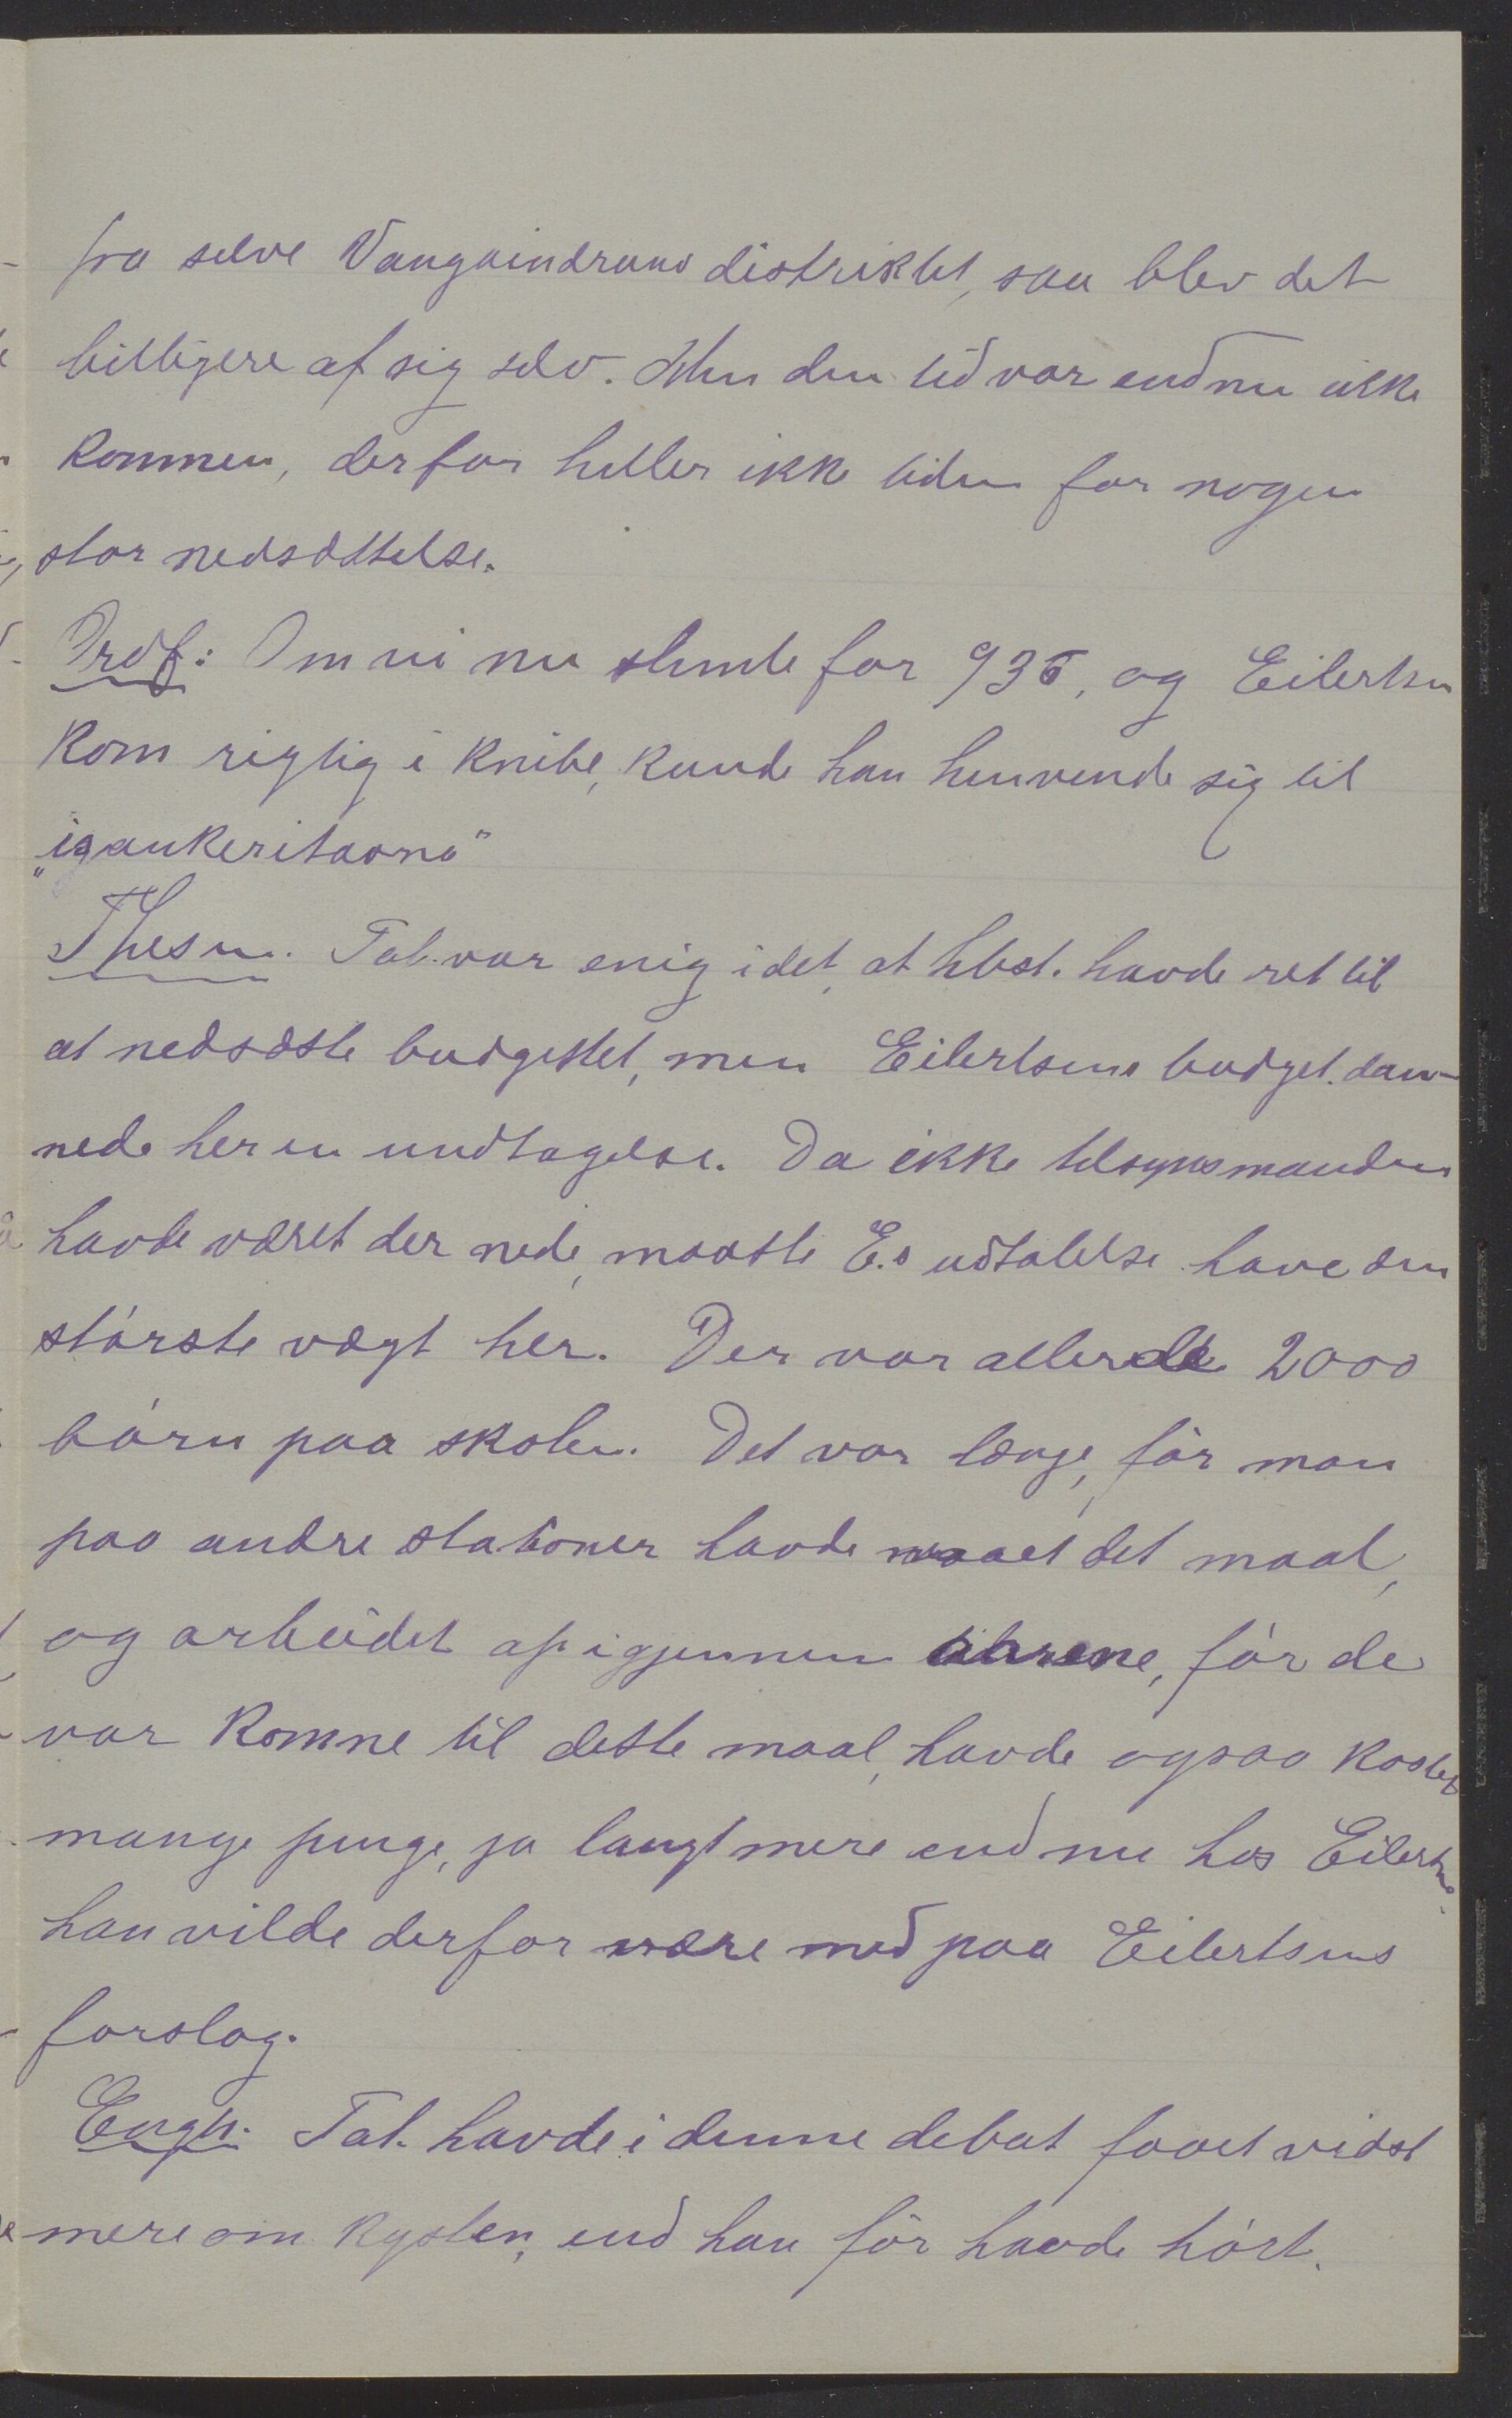 fra selve Vangaindrano distriktet, saa blev det
billigere af sig selv. Men den tid var endnu ikke
kommen, derfor heller ikke tiden for nogen
stor nedsættelse.
Prof: Om vi nu stemte for 935, og Eilertsen
kom rigtig i knibe, kunde han henvende sig til
"isankeritaona"
Thesen. Tal. var enig i det, at hbst. havde ret til
at nedsætte budgettet, men Eilertsens budget dan-
nede her en undtagelse. Da ikke tilsynsmanden
havde været der nede, maatte E.s udtalelse have den
største vægt her. Der var allerede 2000
børn paa skolen. Det var længe, før man
paa andre stationer havde naaet det maal,
og arbeidet op igjennem aarene, før de
var komne til dette maal, havde ogsaa kostet
mange penge, ja langt mere end nu hos Eilertsen.
han vilde derfor være med paa Eilertsens
forslag.
Engh. Tal. havde i denne debat faaet vidst
mere om kysten, end han før havde hørt.